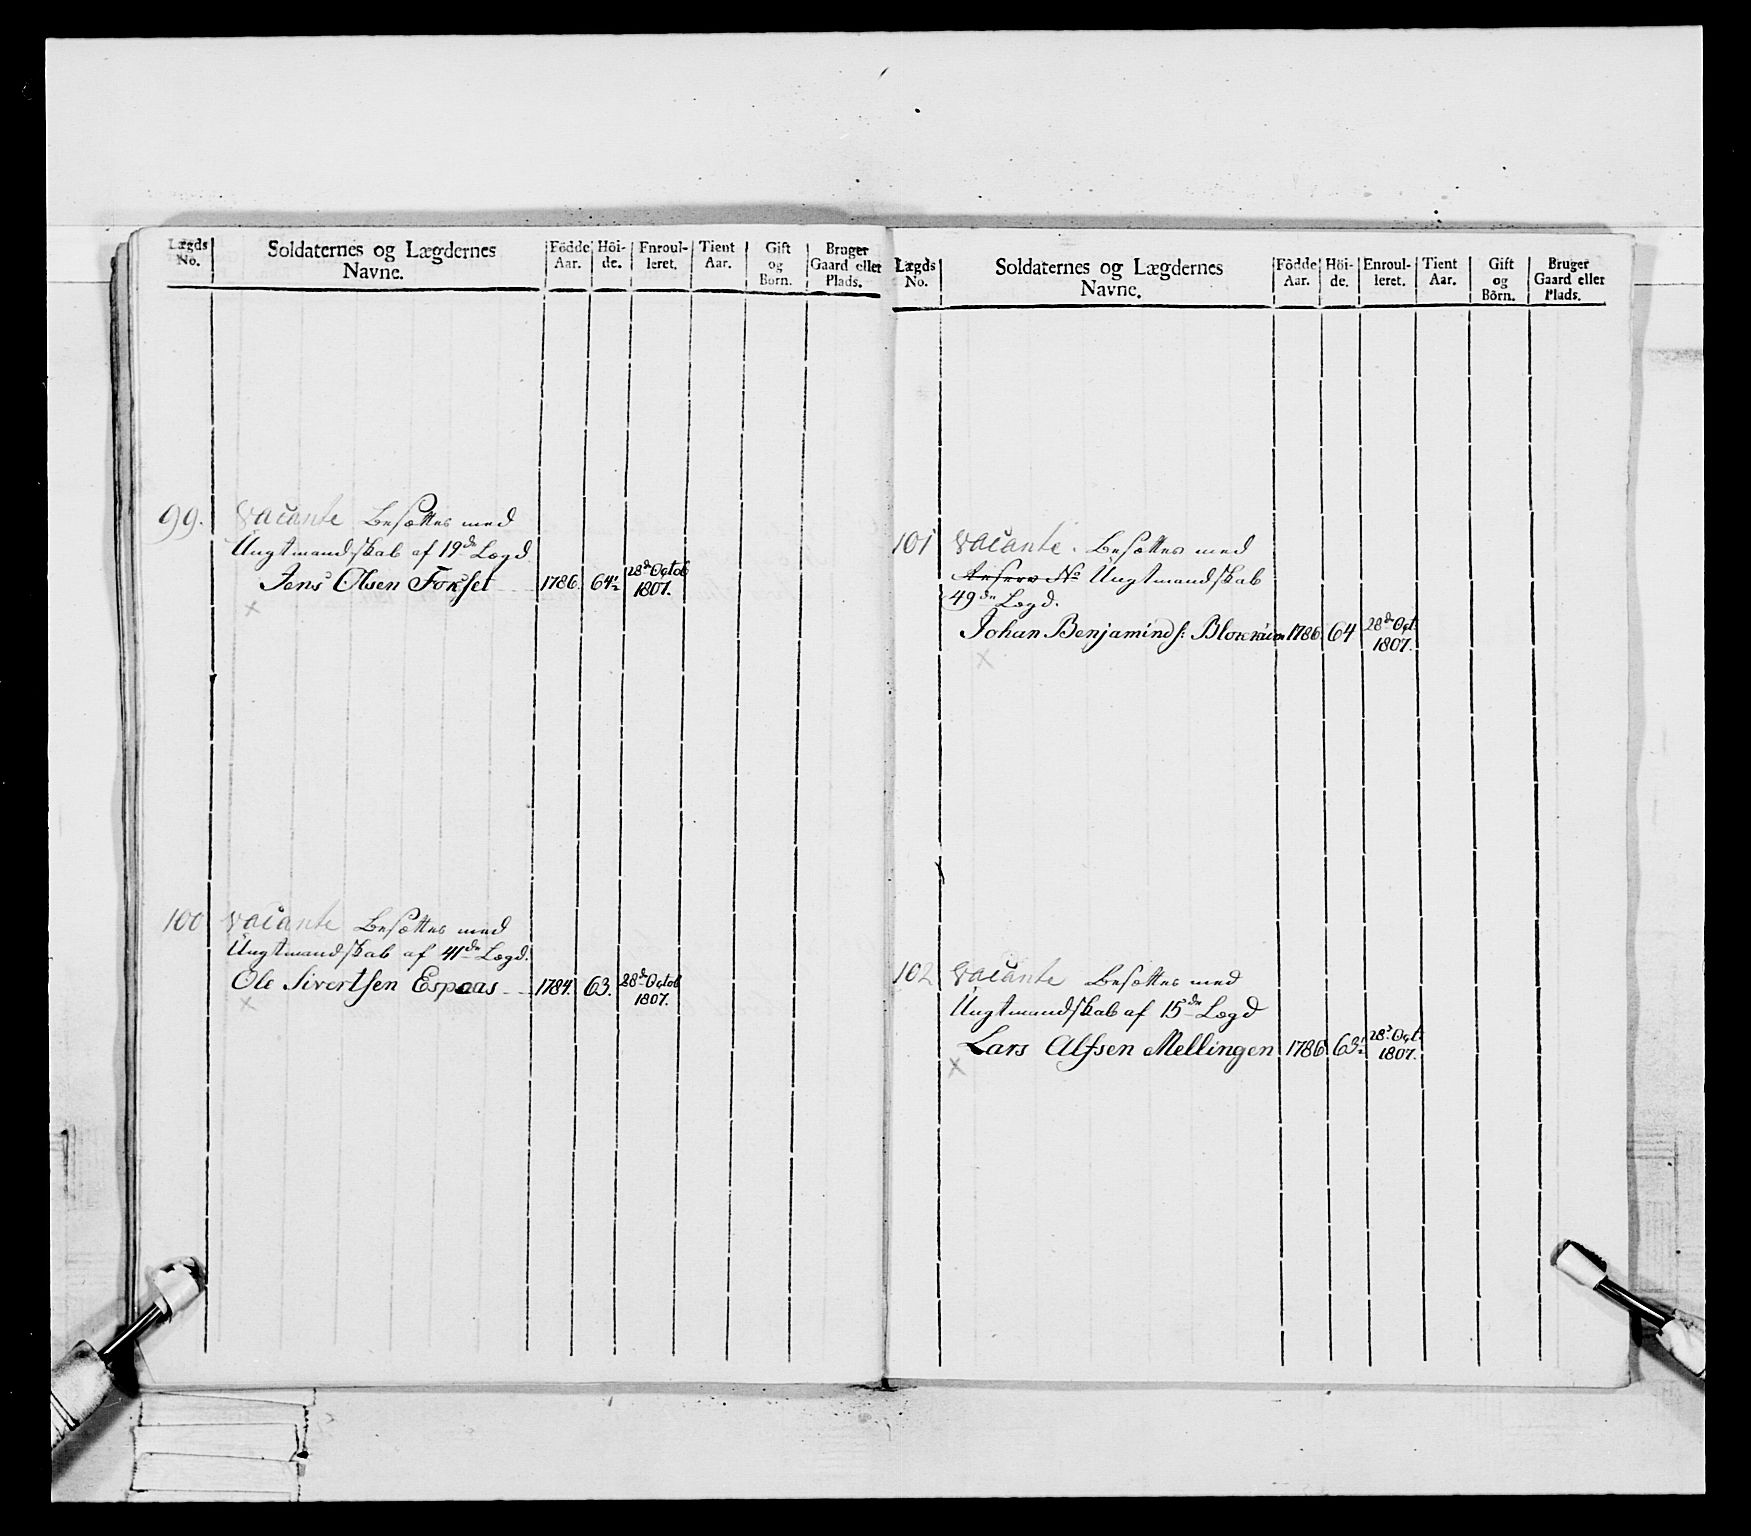 Lægds No. Soldaternes og Lægdernes Navne. Födde Aar. Höi-de. Enroul-leret. Tient Aar. Gift og Börn. Bruger Gaard eller Plads.
99. Vacante Besættes med
Ungtmandskab af 19de Lægd
Jens Olsen Fokset 1786. 64½ 28de Octob 1807.
100 Vacante Besættes med
Ungtmandskab af 41de Lægd.
Ole Sivertsen Espaas 1784. 63. 28de Octob 1807.
Lægds No. Soldaternes og Lægdernes Navne. Födde Aar. Höi-de. Enroul-leret. Tient Aar. Gift og Börn. Bruger Gaard eller Plads.
101 Vacante. Besættes med
No Ungtmandskab
49de Lægd.
Johan Benjamins: 1786 64 28de Oct. 1807.
102 Vacante Besættes med
Ungtmandskab af 15de Lægd
Lars Alfsen Mellingen 1786 63½ 28de Oct. 1807.